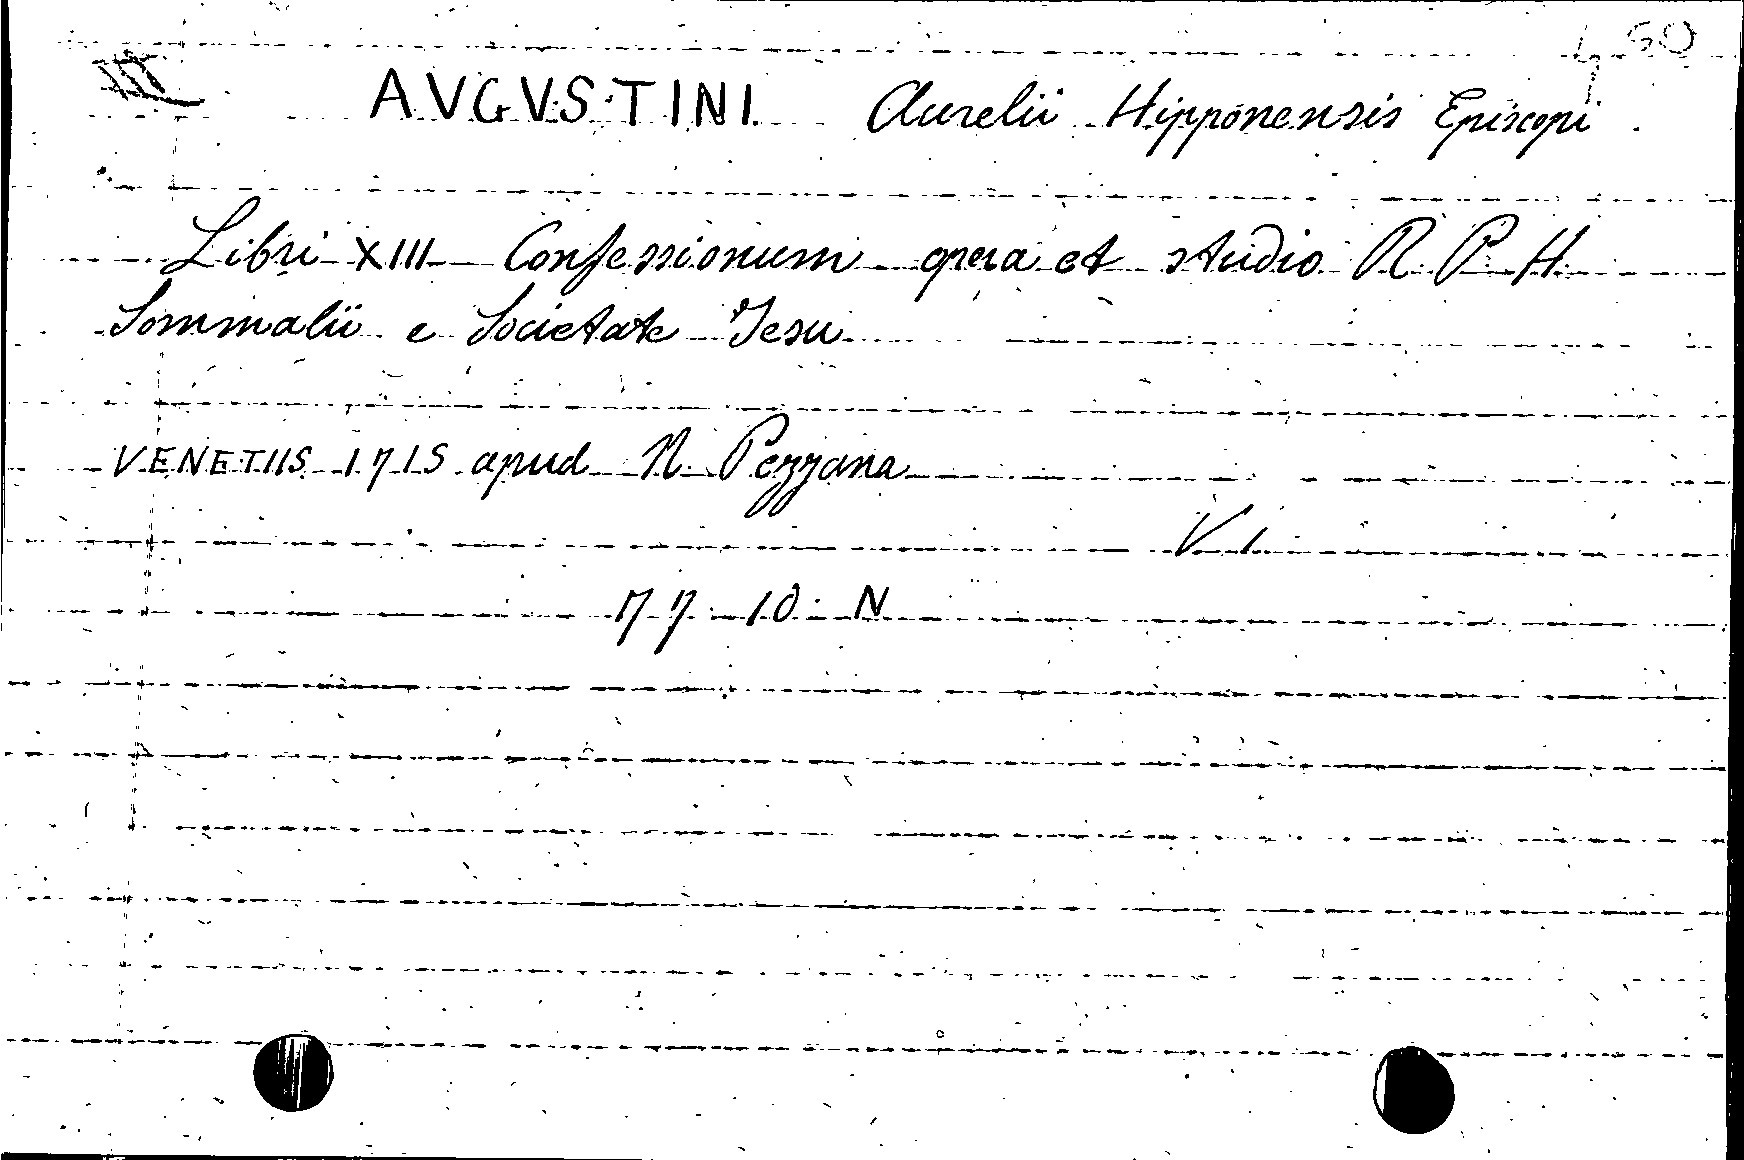 50
AVGVSTINI Aurelii Hipponensis Episcopi
Libri XIII Confessionum opera et studio R. P. H.
Sommalii e Societate Jesu
VENETIIS 1715 apud N. Pezzana
V. 1
77 10 N